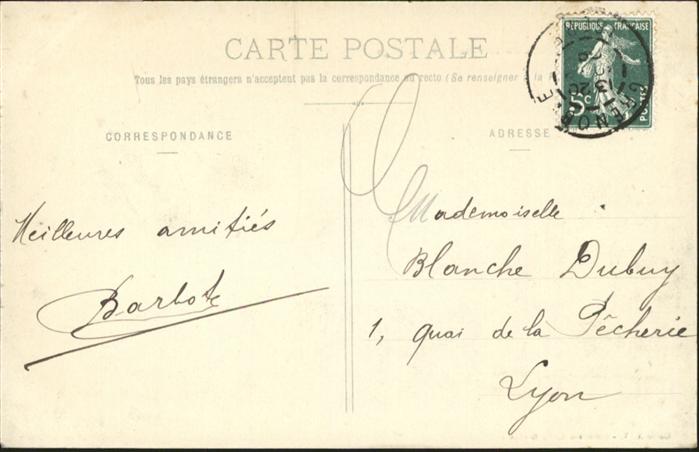 CARTE POSTALE
Tous les pays étrangers n'acceptent pas la correspondance au recto (Se renseigner à la
CORRESPONDANCE
ADRESSE
RÉPUBLIQUE FRANÇAISE
5c
POSTES
GRENOBLE
Meilleures amitiés
Barbote
Mademoiselle
Blanche Dubuy
1, quai de la Pêcherie
Lyon